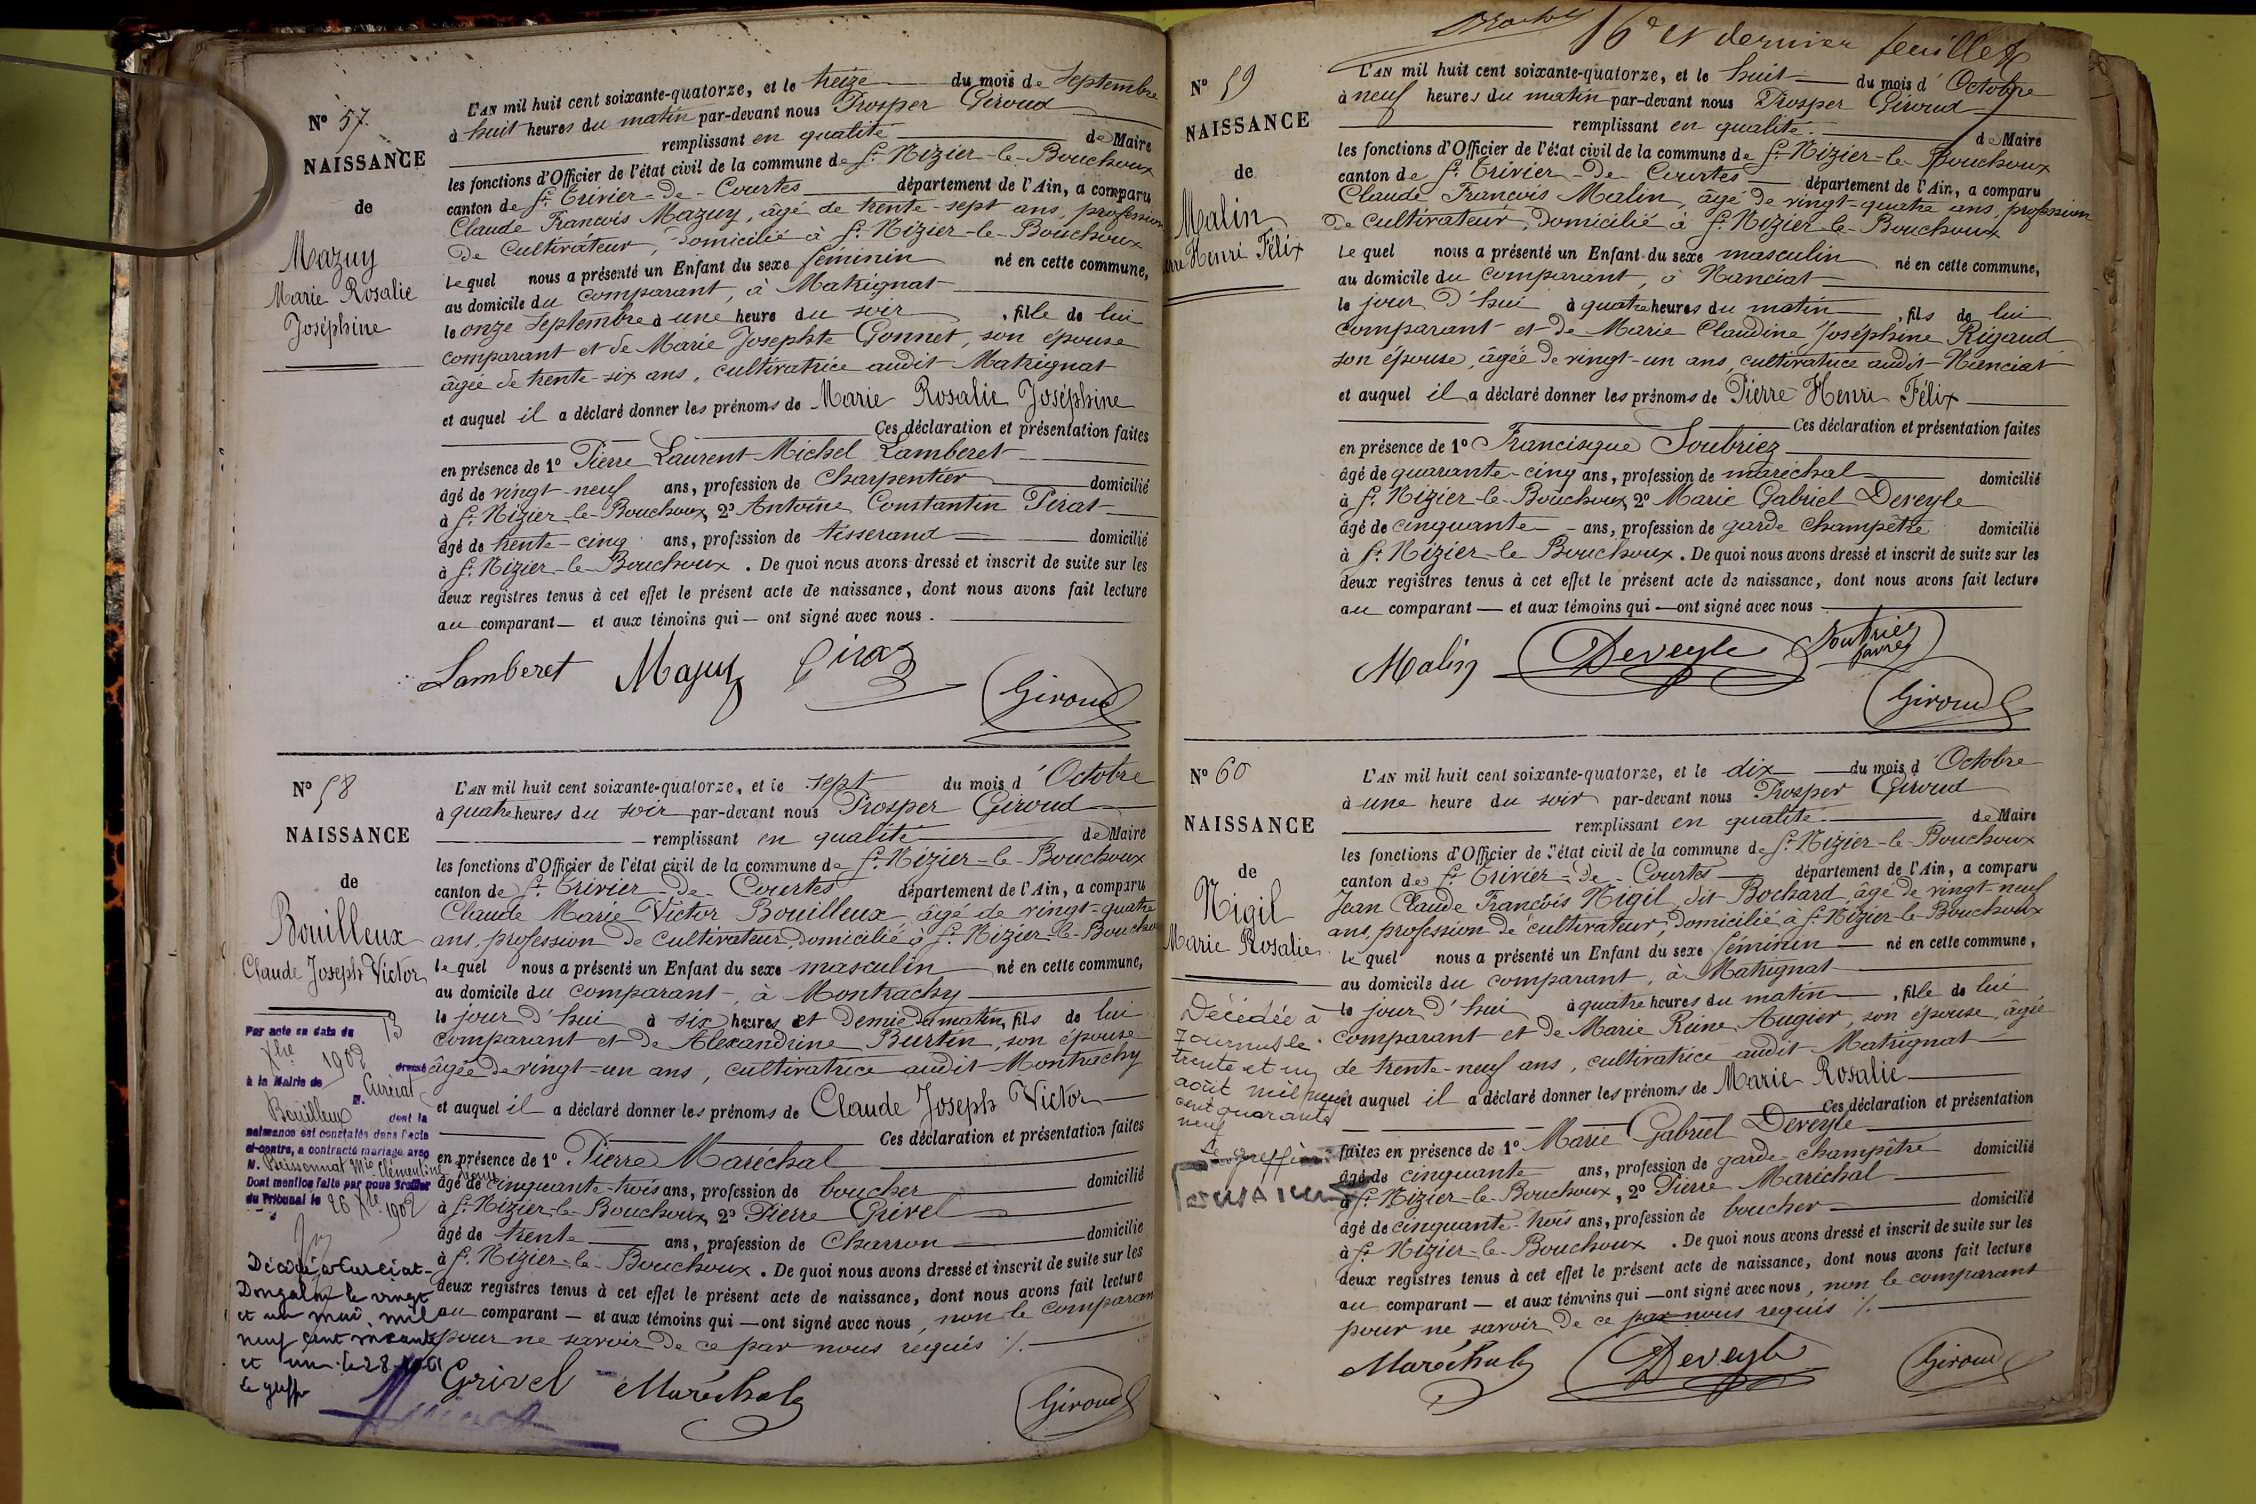 N° 57.
NAISSANCE
de
Mazuy
Marie Rosalie
Joséphine
L'AN mil huit cent soixante-quatorze, et le treize du mois de Septembre
à huit heures du matin par-devant nous Prosper Giroud
remplissant en qualité de Maire
les fonctions d'Officier de l'état civil de la commune de St Nizier-le-Bouchoux
canton de St Trivier-de-Courtes département de l'Ain, a comparu
Claude François Mazuy, âgé de trente-sept ans, profession
de cultivateur, domicilié à St Nizier-le-Bouchoux
Lequel nous a présenté un Enfant du sexe féminin né en cette commune,
au domicile du comparant, à Matrignat
le onze Septembre à une heure du soir, fille de lui
comparant et de Marie Josephte Gonnet, son épouse
âgée de trente-six ans, cultivatrice audit Matrignat
et auquel il a déclaré donner les prénoms de Marie Rosalie Joséphine
Ces déclaration et présentation faites
en présence de 1° Pierre Laurent Michel Lamberet
âgé de vingt-neuf ans, profession de Charpentier domicilié
à St Nizier-le-Bouchoux, 2° Antoine Constantin Pirat
âgé de trente-cinq ans, profession de tisserand domicilié
à St Nizier-le-Bouchoux. De quoi nous avons dressé et inscrit de suite sur les
deux registres tenus à cet effet le présent acte de naissance, dont nous avons fait lecture
au comparant — et aux témoins qui — ont signé avec nous.
Lamberet Mazuy Pirat
Giroud
N° 58
NAISSANCE
de
Bouilleux
Claude Joseph Victor
Par acte en date du 13
Xbre 1902 dressé
à la Mairie de Curciat
M. Bouilleux dont la
naissance est constatée dans l'acte
ci-contre, a contracté mariage avec
M. Buissonnat Mie Clémentine
Dont mention faite par nous Greffier
du Tribunal le 26 Xbre 1902
Décédé à Curciat-
Dongalon le vingt
et un mai mil
neuf cent soixante
et un. le 28
Le greffier
L'AN mil huit cent soixante-quatorze, et le sept du mois d'Octobre
à quatre heures du soir par-devant nous Prosper Giroud
remplissant en qualité de Maire
les fonctions d'Officier de l'état civil de la commune de St Nizier-le-Bouchoux
canton de St Trivier-de-Courtes département de l'Ain, a comparu
Claude Marie Victor Bouilleux, âgé de vingt-quatre
ans, profession de cultivateur, domicilié à St Nizier-le-Bouchoux
lequel nous a présenté un Enfant du sexe masculin né en cette commune,
au domicile du comparant, à Montrachy
le jour d'hui à six heures et demie du matin, fils de lui
comparant et de Alexandrine Burtin, son épouse
âgée de vingt-un ans, cultivatrice audit Montrachy
et auquel il a déclaré donner les prénoms de Claude Joseph Victor
Ces déclaration et présentation faites
en présence de 1° Pierre Maréchal
âgé de cinquante-trois ans, profession de boucher domicilié
à St Nizier-le-Bouchoux, 2° Pierre Grivel
âgé de trente ans, profession de Charron domicilié
à St Nizier-le-Bouchoux. De quoi nous avons dressé et inscrit de suite sur les
deux registres tenus à cet effet le présent acte de naissance, dont nous avons fait lecture
au comparant — et aux témoins qui — ont signé avec nous, non le comparant
pour ne savoir de ce par nous requis ./.
Grivel Maréchal
Giroud
16e et dernier feuillet
N° 59
NAISSANCE
de
Malin
Pierre Henri Félix
L'AN mil huit cent soixante-quatorze, et le huit du mois d'Octobre
à neuf heures du matin par-devant nous Prosper Giroud
remplissant en qualité de Maire
les fonctions d'Officier de l'état civil de la commune de St Nizier-le-Bouchoux
canton de St Trivier-de-Courtes département de l'Ain, a comparu
Claude François Malin, âgé de vingt-quatre ans, profession
de cultivateur, domicilié à St Nizier-le-Bouchoux
Lequel nous a présenté un Enfant du sexe masculin né en cette commune,
au domicile du comparant, à Nanciat
le jour d'hui à quatre heures du matin, fils de lui
comparant et de Marie Claudine Joséphine Rigaud
son épouse, âgée de vingt-un ans, cultivatrice audit Nanciat
et auquel il a déclaré donner les prénoms de Pierre Henri Félix
Ces déclaration et présentation faites
en présence de 1° Francisque Soubriez
âgé de quarante-cinq ans, profession de maréchal domicilié
à St Nizier-le-Bouchoux, 2° Marie Gabriel Deveyle
âgé de cinquante ans, profession de garde champêtre domicilié
à St Nizier-le-Bouchoux. De quoi nous avons dressé et inscrit de suite sur les
deux registres tenus à cet effet le présent acte de naissance, dont nous avons fait lecture
au comparant — et aux témoins qui — ont signé avec nous.
Malin Deveyle Soubriez
Giroud
N° 60
NAISSANCE
de
Nigil
Marie Rosalie
Décédée à
Tournus le
trente et un
août mil neuf
cent quarante
neuf
Le greffier
L'AN mil huit cent soixante-quatorze, et le dix du mois d'Octobre
à une heure du soir par-devant nous Prosper Giroud
remplissant en qualité de Maire
les fonctions d'Officier de l'état civil de la commune de St Nizier-le-Bouchoux
canton de St Trivier-de-Courtes département de l'Ain, a comparu
Jean Claude François Nigil, dit Bochard, âgé de vingt-neuf
ans, profession de cultivateur, domicilié à St Nizier-le-Bouchoux
lequel nous a présenté un Enfant du sexe féminin né en cette commune,
au domicile du comparant, à Matrignat
le jour d'hui à quatre heures du matin, fille de lui
comparant et de Marie Reine Augier, son épouse, âgée
de trente-neuf ans, cultivatrice audit Matrignat
et auquel il a déclaré donner les prénoms de Marie Rosalie
Ces déclaration et présentation
faites en présence de 1° Marie Gabriel Deveyle
âgé de cinquante ans, profession de garde-champêtre domicilié
à St Nizier-le-Bouchoux, 2° Pierre Maréchal
âgé de cinquante-trois ans, profession de boucher domicilié
à St Nizier-le-Bouchoux. De quoi nous avons dressé et inscrit de suite sur les
deux registres tenus à cet effet le présent acte de naissance, dont nous avons fait lecture
au comparant — et aux témoins qui — ont signé avec nous, non le comparant
pour ne savoir de ce par nous requis ./.
Maréchal Deveyle Giroud